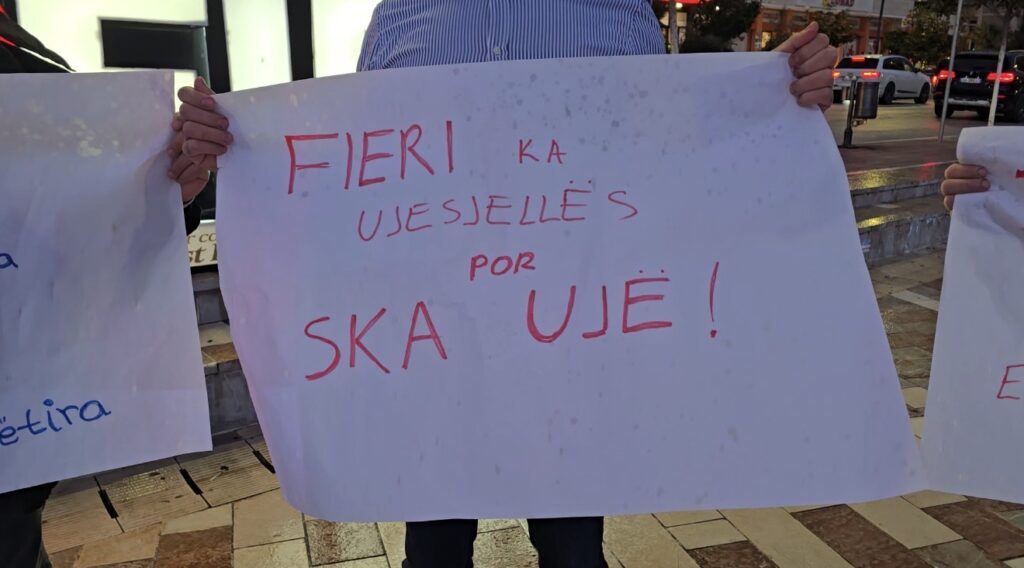 FIERI KA
UJESJELLËS
POR
SKA UJË!
ëtira